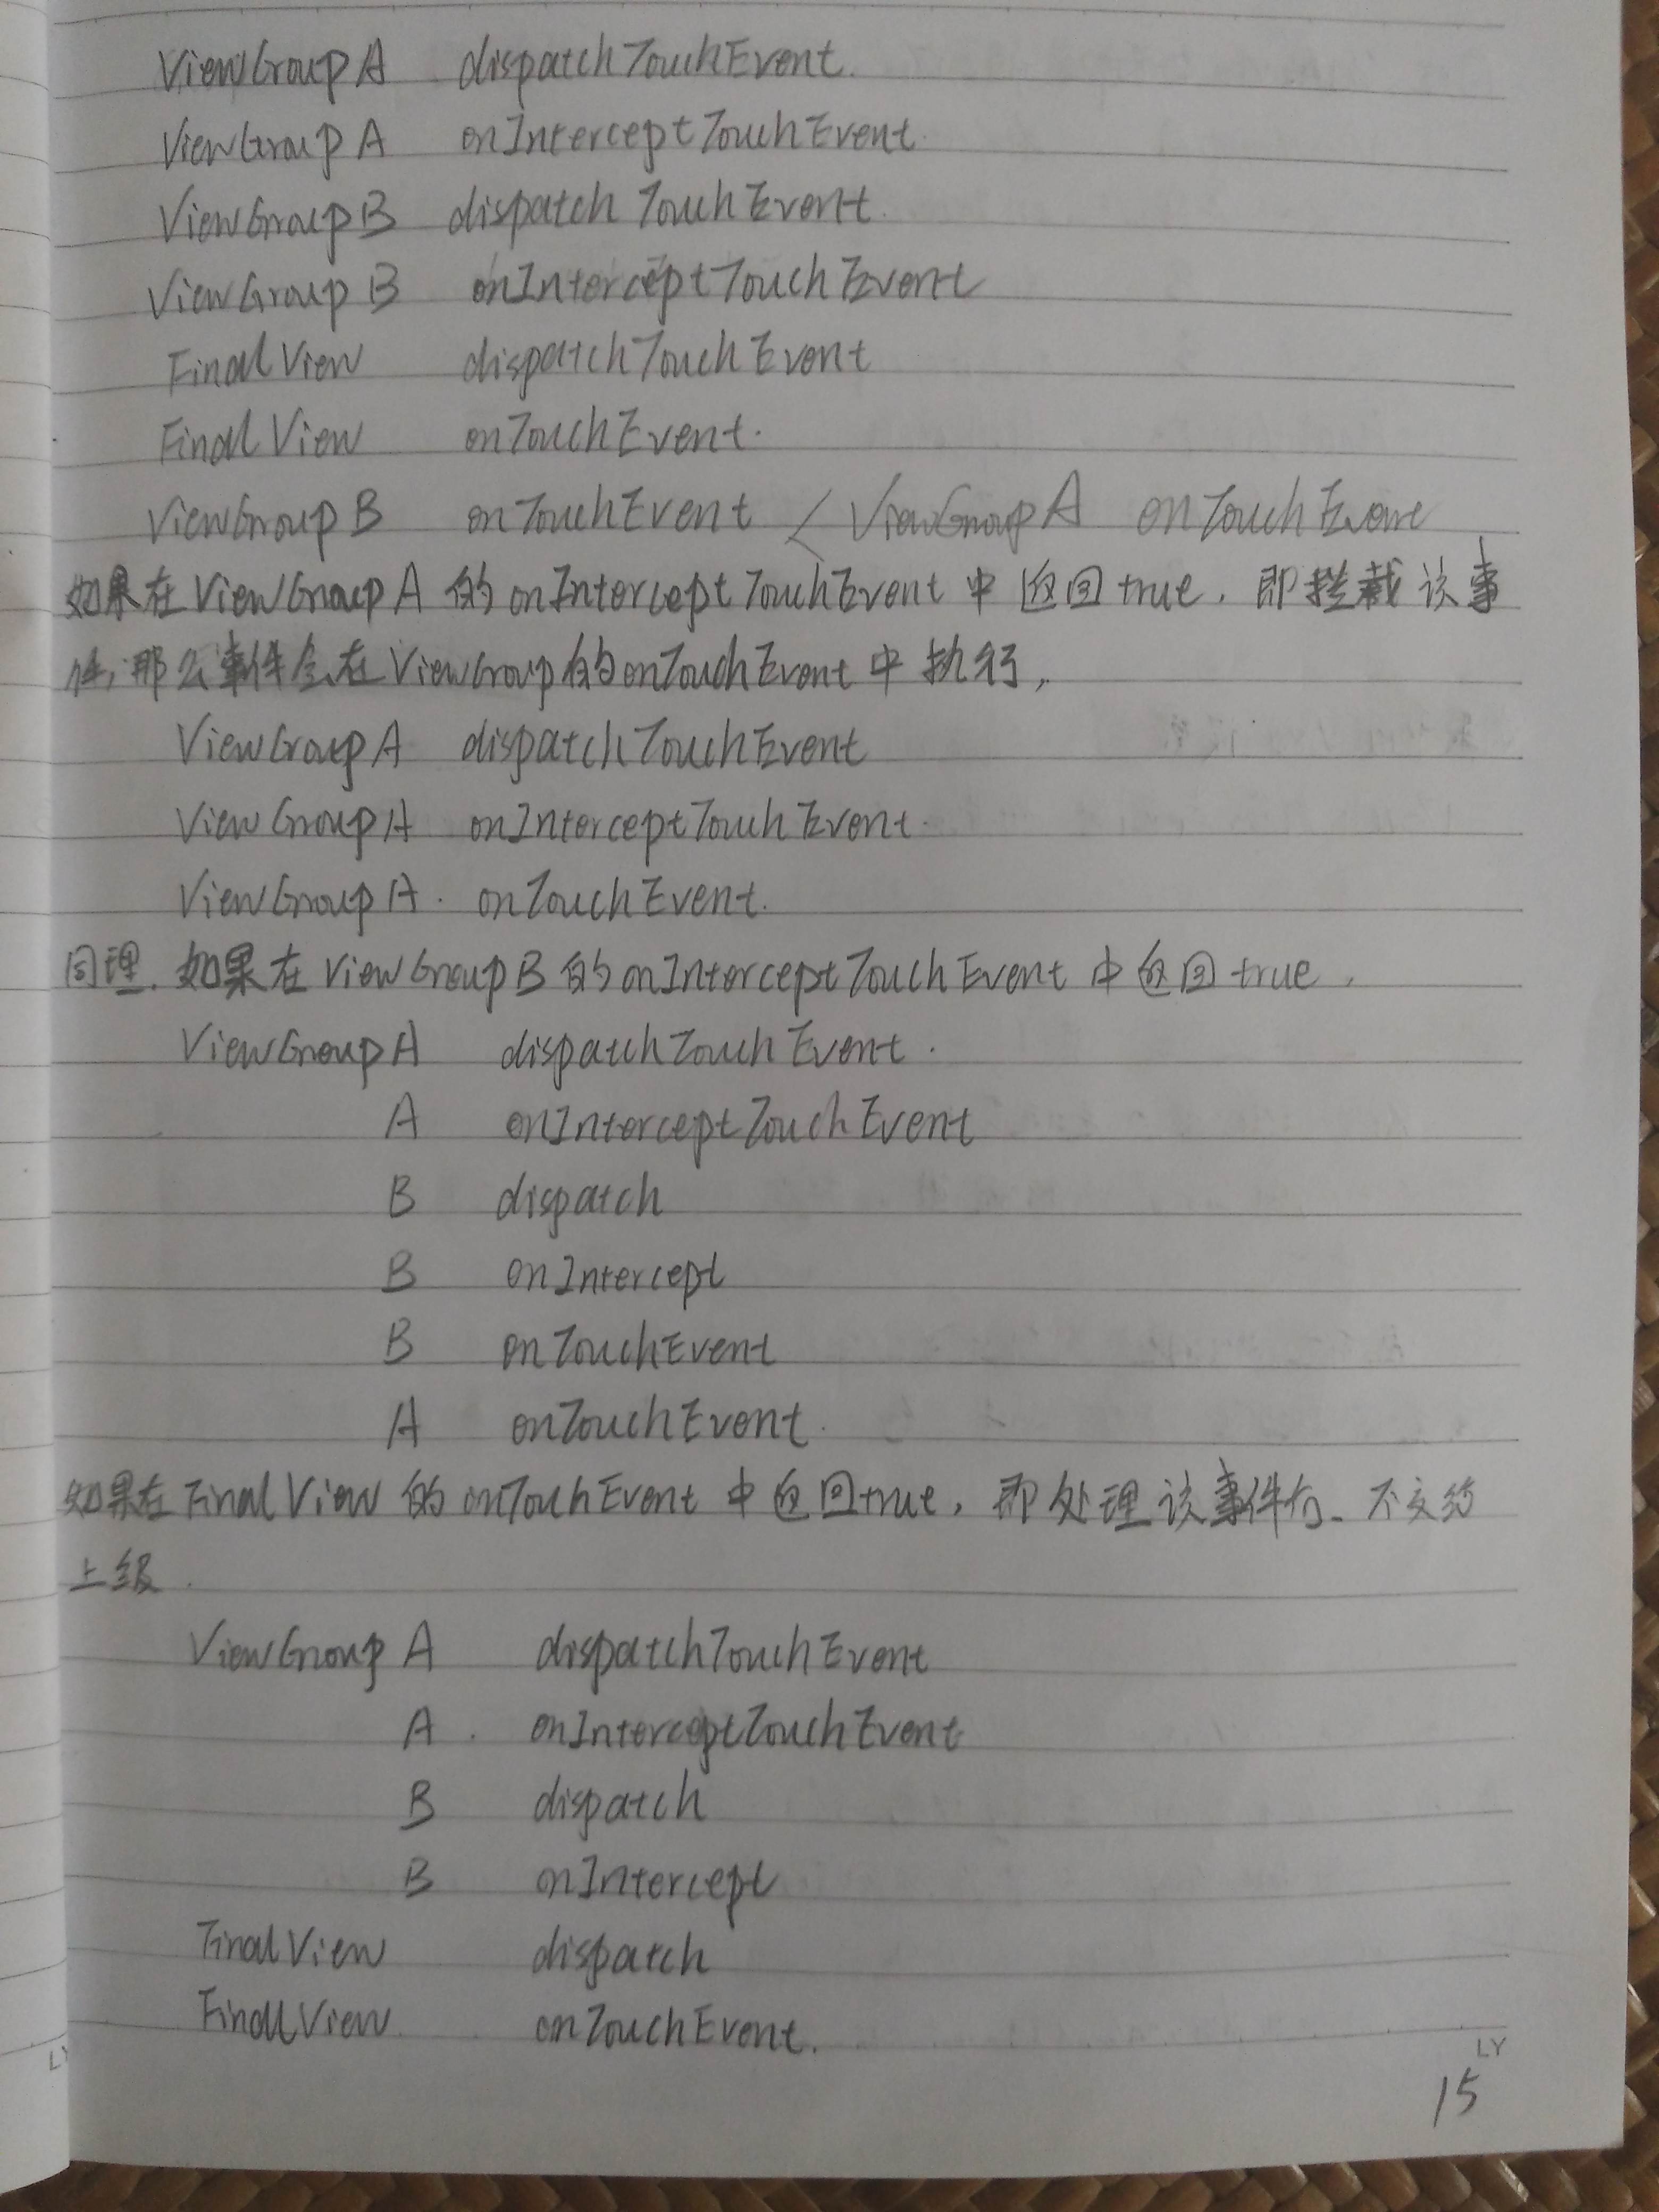 ViewGroup A dispatchTouchEvent.
ViewGroup A onInterceptTouchEvent.
ViewGroup B dispatchTouchEvent.
ViewGroup B onInterceptTouchEvent
Final View dispatchTouchEvent
Final View onTouchEvent.
ViewGroup B onTouchEvent < ViewGroup A onTouchEvent
如果在ViewGroup A 的onInterceptTouchEvent中返回true,即拦截该事
件,那么事件会在ViewGroup的onTouchEvent中执行,
ViewGroup A dispatchTouchEvent
ViewGroup A onInterceptTouchEvent.
ViewGroup A. onTouchEvent.
同理.如果在ViewGroup B的onInterceptTouchEvent中返回true.
ViewGroup A dispatchTouchEvent.
A onInterceptTouchEvent
B dispatch
B onIntercept
B onTouchEvent
A onTouchEvent.
如果在Final View 的onTouchEvent中返回true,即处理该事件,不交给
上级.
ViewGroup A dispatchTouchEvent
A. onInterceptTouchEvent
B dispatch
B onIntercept
Final View dispatch
Final View onTouchEvent.
LY
15